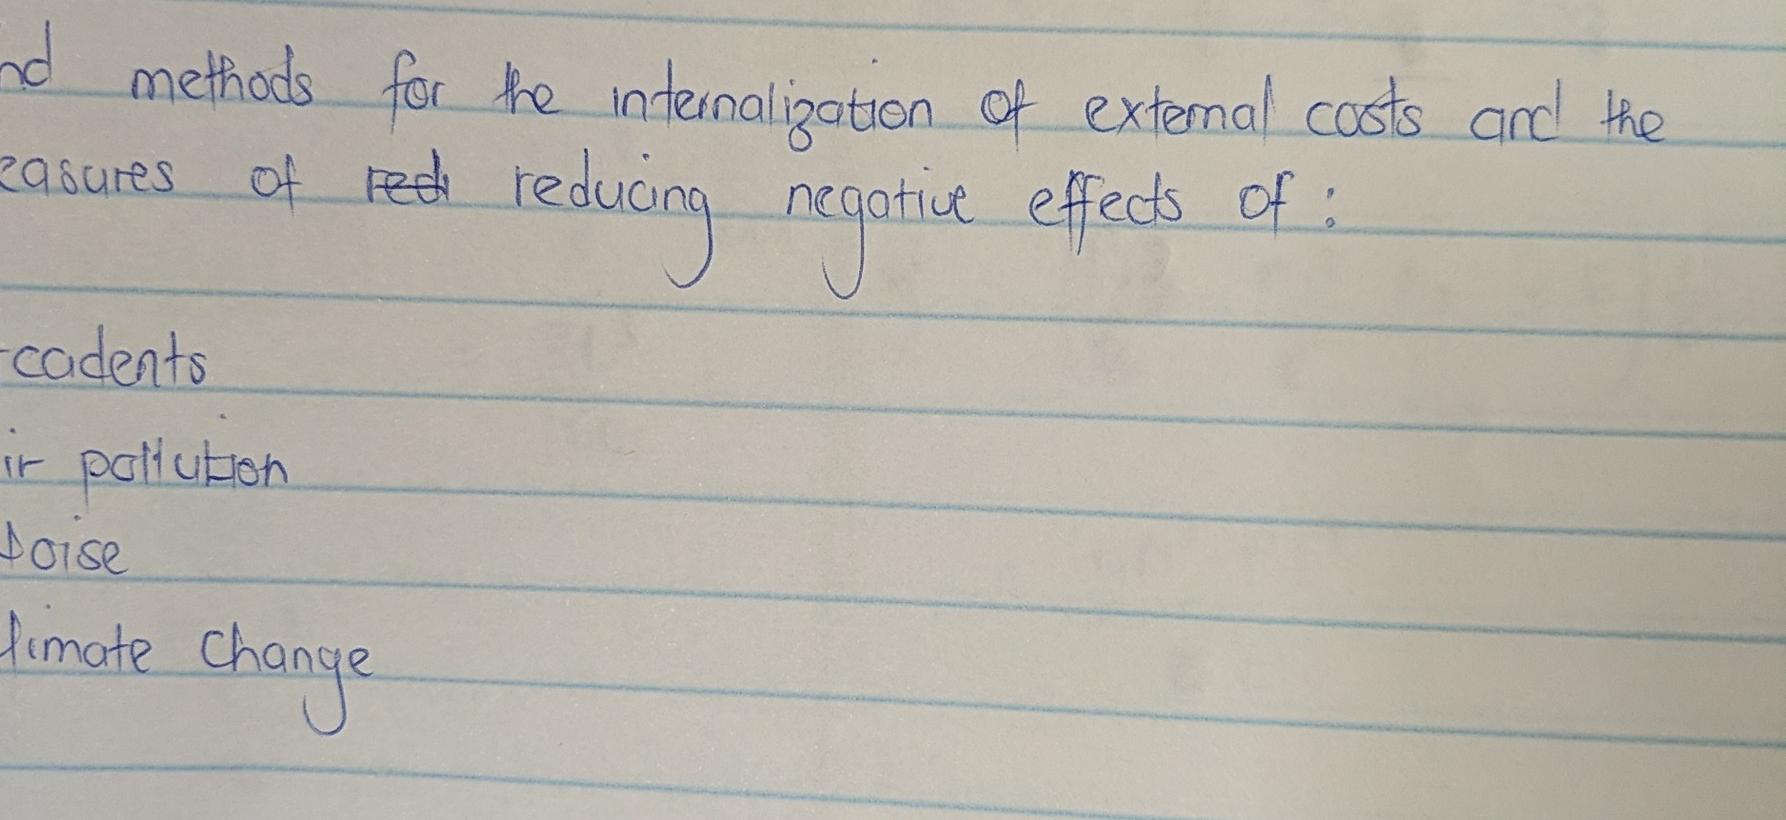 nd methods for the internalization of external costs and the
easures of red reducing negative effects of :
ccidents
ir pollution
Noise
limate Change